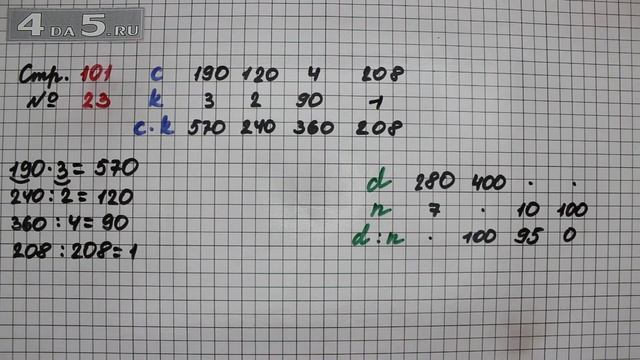 4 DA 5.RU
Стр. 101 c 190 120 4 208
№ 23 k 3 2 90 1
c·k 570 240 360 208
190·3=570
240:2=120
360:4=90
208:208=1
d 280 400 · ·
n 7 · 10 100
d:n · 100 95 0